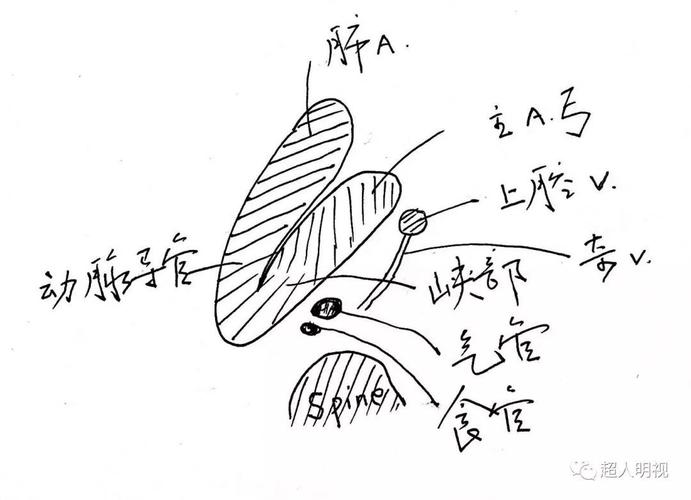 肺A.
主A.弓
上腔V.
奇V.
动脉导管
峡部
气管
食管
Spine
超人明视